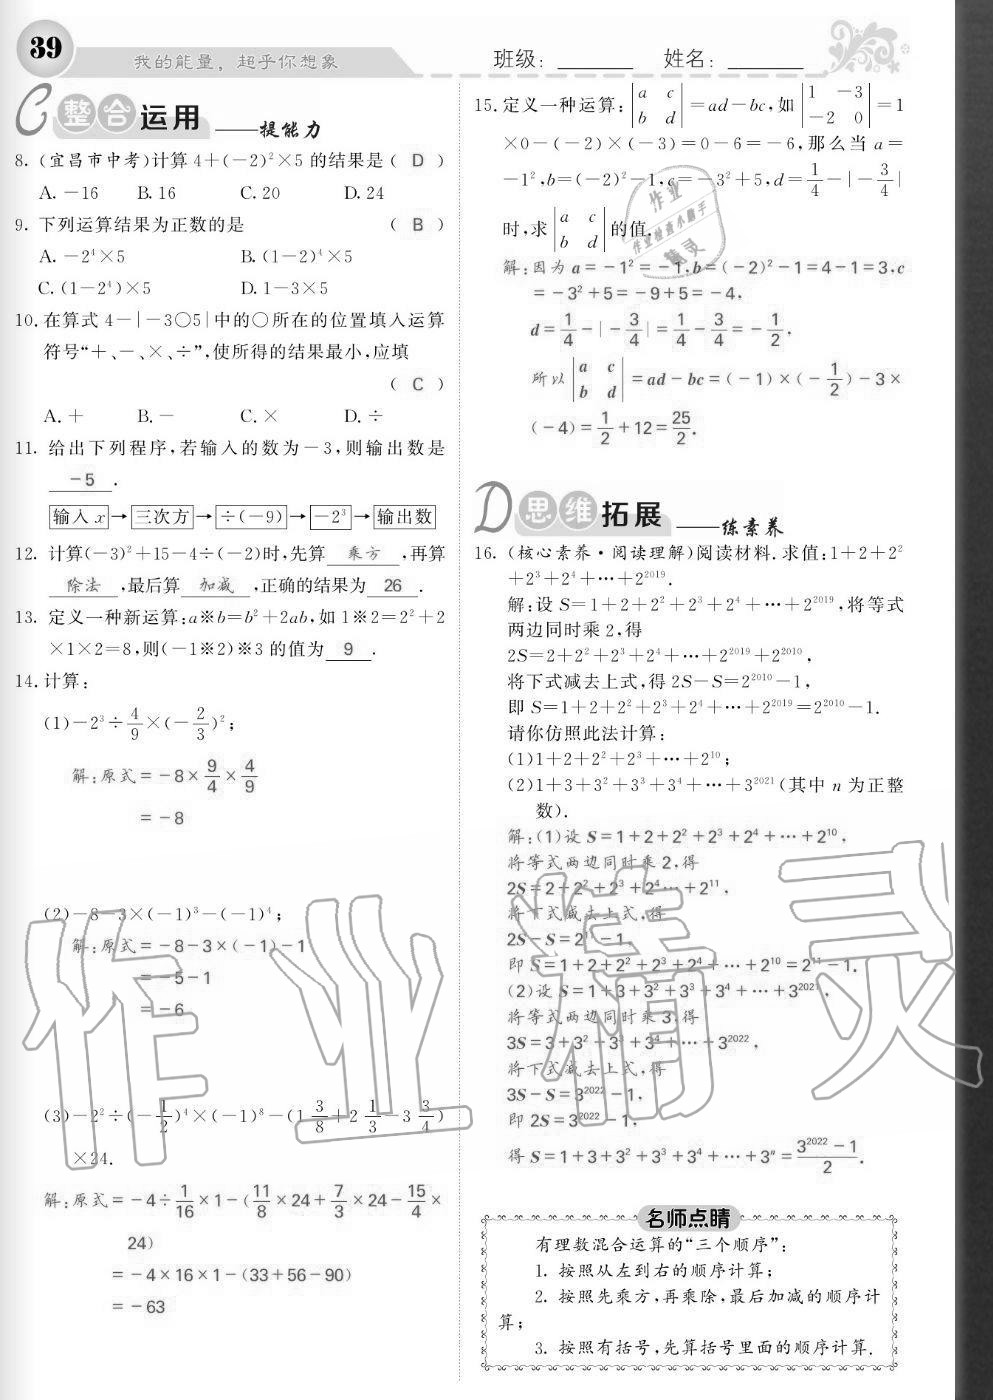 39
我的能量，超乎你想象
班级：________ 姓名：________
C 整合运用——提能力
8.（宜昌市中考)计算4+(-2)²×5的结果是( D )
A. -16 B. 16 C. 20 D. 24
9. 下列运算结果为正数的是 ( B )
A. -2⁴×5 B. (1-2)⁴×5
C. (1-2⁴)×5 D. 1-3×5
10. 在算式4-|-3○5|中的○所在的位置填入运算
符号“+、-、×、÷”,使所得的结果最小,应填
( C )
A. + B. - C. × D. ÷
11. 给出下列程序,若输入的数为-3,则输出数是
-5 .
输入x→三次方→÷(-9)→-2³→输出数
12. 计算(-3)²+15-4÷(-2)时,先算 乘方 ,再算
除法 ,最后算 加减 ,正确的结果为 26 .
13. 定义一种新运算:a※b=b²+2ab,如1※2=2²+2
×1×2=8,则(-1※2)※3的值为 9 .
14. 计算:
(1)-2³÷4/9×(-2/3)²;
解:原式=-8×9/4×4/9
=-8
(2)-8-3×(-1)³-(-1)⁴;
解:原式=-8-3×(-1)-1
=-5-1
=-6
(3)-2²÷(-1/2)⁴×(-1)⁸-(1 3/8+2 1/3-3 3/4)
×24.
解:原式=-4÷1/16×1-(11/8×24+7/3×24-15/4×
24)
=-4×16×1-(33+56-90)
=-63
15. 定义一种运算:|a c; b d|=ad-bc,如|1 -3; -2 0|=1
×0-(-2)×(-3)=0-6=-6,那么当a=
-1²,b=(-2)²-1,c=-3²+5,d=1/4-|-3/4|
时,求|a c; b d|的值.
解:因为a=-1²=-1,b=(-2)²-1=4-1=3,c
=-3²+5=-9+5=-4,
d=1/4-|-3/4|=1/4-3/4=-1/2,
所以|a c; b d|=ad-bc=(-1)×(-1/2)-3×
(-4)=1/2+12=25/2.
D 思维拓展——练素养
16.（核心素养·阅读理解)阅读材料.求值:1+2+2²
+2³+2⁴+…+2²⁰¹⁹.
解:设S=1+2+2²+2³+2⁴+…+2²⁰¹⁹,将等式
两边同时乘2,得
2S=2+2²+2³+2⁴+…+2²⁰¹⁹+2²⁰¹⁰,
将下式减去上式,得2S-S=2²⁰¹⁰-1,
即S=1+2+2²+2³+2⁴+…+2²⁰¹⁹=2²⁰¹⁰-1.
请你仿照此法计算:
(1)1+2+2²+2³+…+2¹⁰;
(2)1+3+3²+3³+3⁴+…+3²⁰²¹(其中n为正整
数).
解:(1)设S=1+2+2²+2³+2⁴+…+2¹⁰,
将等式两边同时乘2,得
2S=2+2²+2³+2⁴…+2¹¹,
将下式减去上式,得
2S-S=2¹¹-1,
即S=1+2+2²+2³+2⁴+…+2¹⁰=2¹¹-1.
(2)设S=1+3+3²+3³+3⁴+…+3²⁰²¹,
将等式两边同时乘3,得
3S=3+3²+3³+3⁴+…+3²⁰²²,
将下式减去上式,得
3S-S=3²⁰²²-1,
即2S=3²⁰²²-1,
得S=1+3+3²+3³+3⁴+…+3ⁿ=(3²⁰²²-1)/2.
名师点睛
有理数混合运算的“三个顺序”:
1. 按照从左到右的顺序计算;
2. 按照先乘方,再乘除,最后加减的顺序计
算;
3. 按照有括号,先算括号里面的顺序计算.
作业
作业检查小助手
精灵
作业精灵